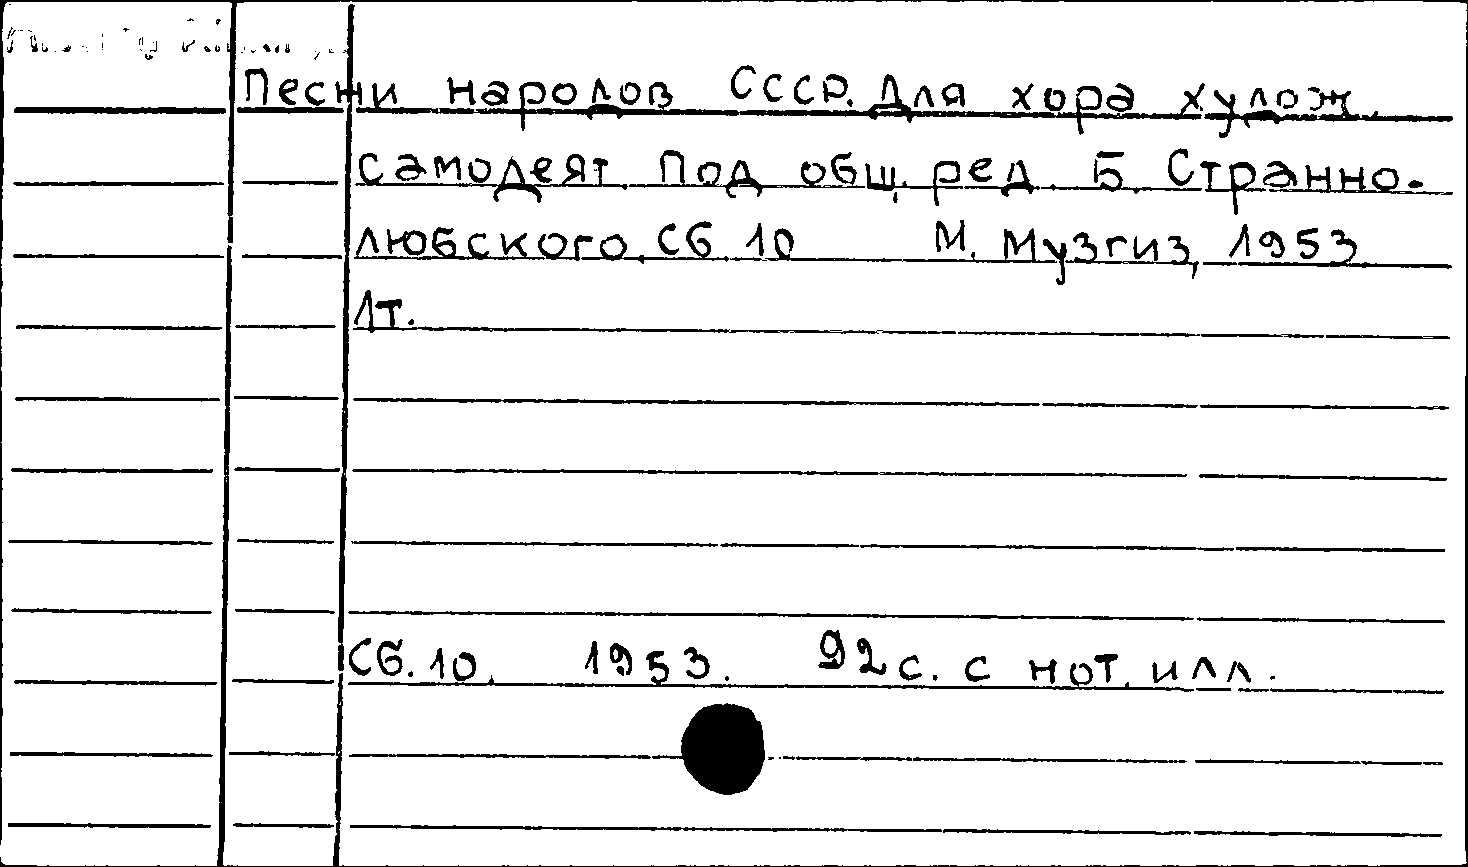 Песни народов СССР. Для хора худож.
самодеят. Под общ. ред. Б. Странно-
любского. Сб. 10 М. Музгиз, 1953
1т.
Сб. 10. 1953. 92 с. с нот. илл.